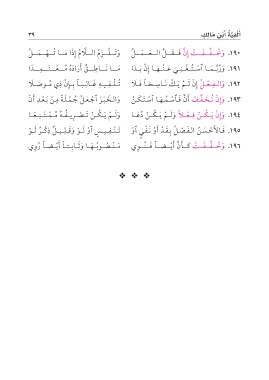 أَلْفِيَّةُ ابْنِ مَالِكٍ ٣٩
١٩٠. وَخُفِّفَتْ إِنَّ فَقَلَّ الْعَمَلُ وَتَلْزَمُ اللَّامُ إِذَا مَا تُهْمَلُ
١٩١. وَرُبَّمَا اسْتُغْنِيَ عَنْهَا إِنْ بَدَا مَا نَاطِقٌ أَرَادَهُ مُعْتَمِدَا
١٩٢. وَالْفِعْلُ إِنْ لَمْ يَكُ نَاسِخًا فَلَا تُلْفِيهِ غَالِبًا بِإِنْ ذِي مُوصَلَا
١٩٣. وَإِنْ تُخَفَّفْ أَنَّ فَاسْمُهَا اسْتَكَنْ وَالْخَبَرَ اجْعَلْ جُمْلَةً مِنْ بَعْدِ أَنْ
١٩٤. وَإِنْ يَكُنْ فِعْلًا وَلَمْ يَكُنْ دُعَا وَلَمْ يَكُنْ تَصْرِيفُهُ مُمْتَنِعَا
١٩٥. فَالْأَحْسَنُ الْفَصْلُ بِقَدْ أَوْ نَفْيٍ أَوْ تَنْفِيسٍ أَوْ لَوْ وَقَلِيلٌ ذِكْرُ لَوْ
١٩٦. وَخُفِّفَتْ كَأَنَّ أَيْضًا فَنُوِي مَنْصُوبُهَا وَثَابِتًا أَيْضًا رُوِي